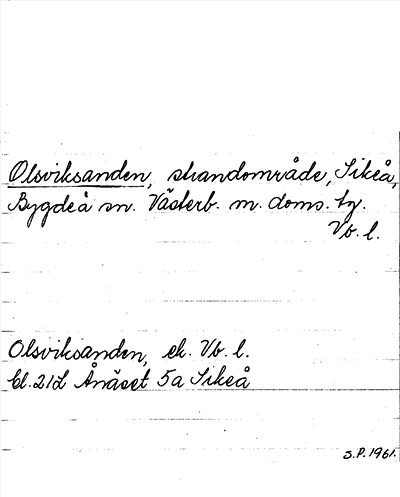 Olsviksanden, strandområde, Sikeå,
Bygdeå sn. Västerb. m. doms. tg.
Vb. l.
Olsviksanden, ek. Vb. l.
bl. 21L Ånäset 5a Sikeå
S.P. 1961.